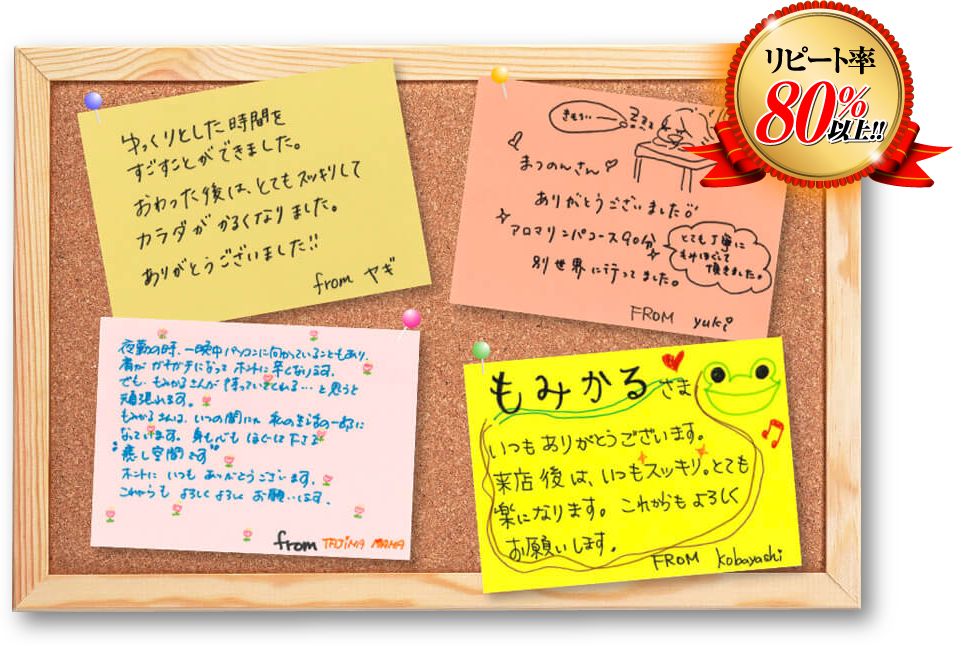 リピート率
80%以上!!
ゆっくりとした時間を
すごすことができました。
おわった後は、とてもスッキリして
カラダがかるくなりました。
ありがとうございました!!
from ヤギ
きもちぃ…
zzz
まつのんさん
ありがとうございました
アロマリンパコース90分
別世界に行ってました。
とても丁寧に
もみほぐして
頂きました。
FROM yuki
夜勤の時、一晩中パソコンに向かっていることもあり、
肩がガチガチになって ホントに辛くなります。
でも、もみかるさんが 待っていてくれる…と思うと
頑張れます。
もみかるさんは、いつの間にか 私の生活の一部に
なっています。身も心も ほぐして下さる
"癒し空間です"
ホントに いつも ありがとうございます。
これからも よろしく よろしく お願いします。
from TAJIMA MAMA
もみかるさま
いつもありがとうございます。
来店後は、いつもスッキリ。とても
楽になります。これからもよろしく
お願いします。
FROM kobayashi